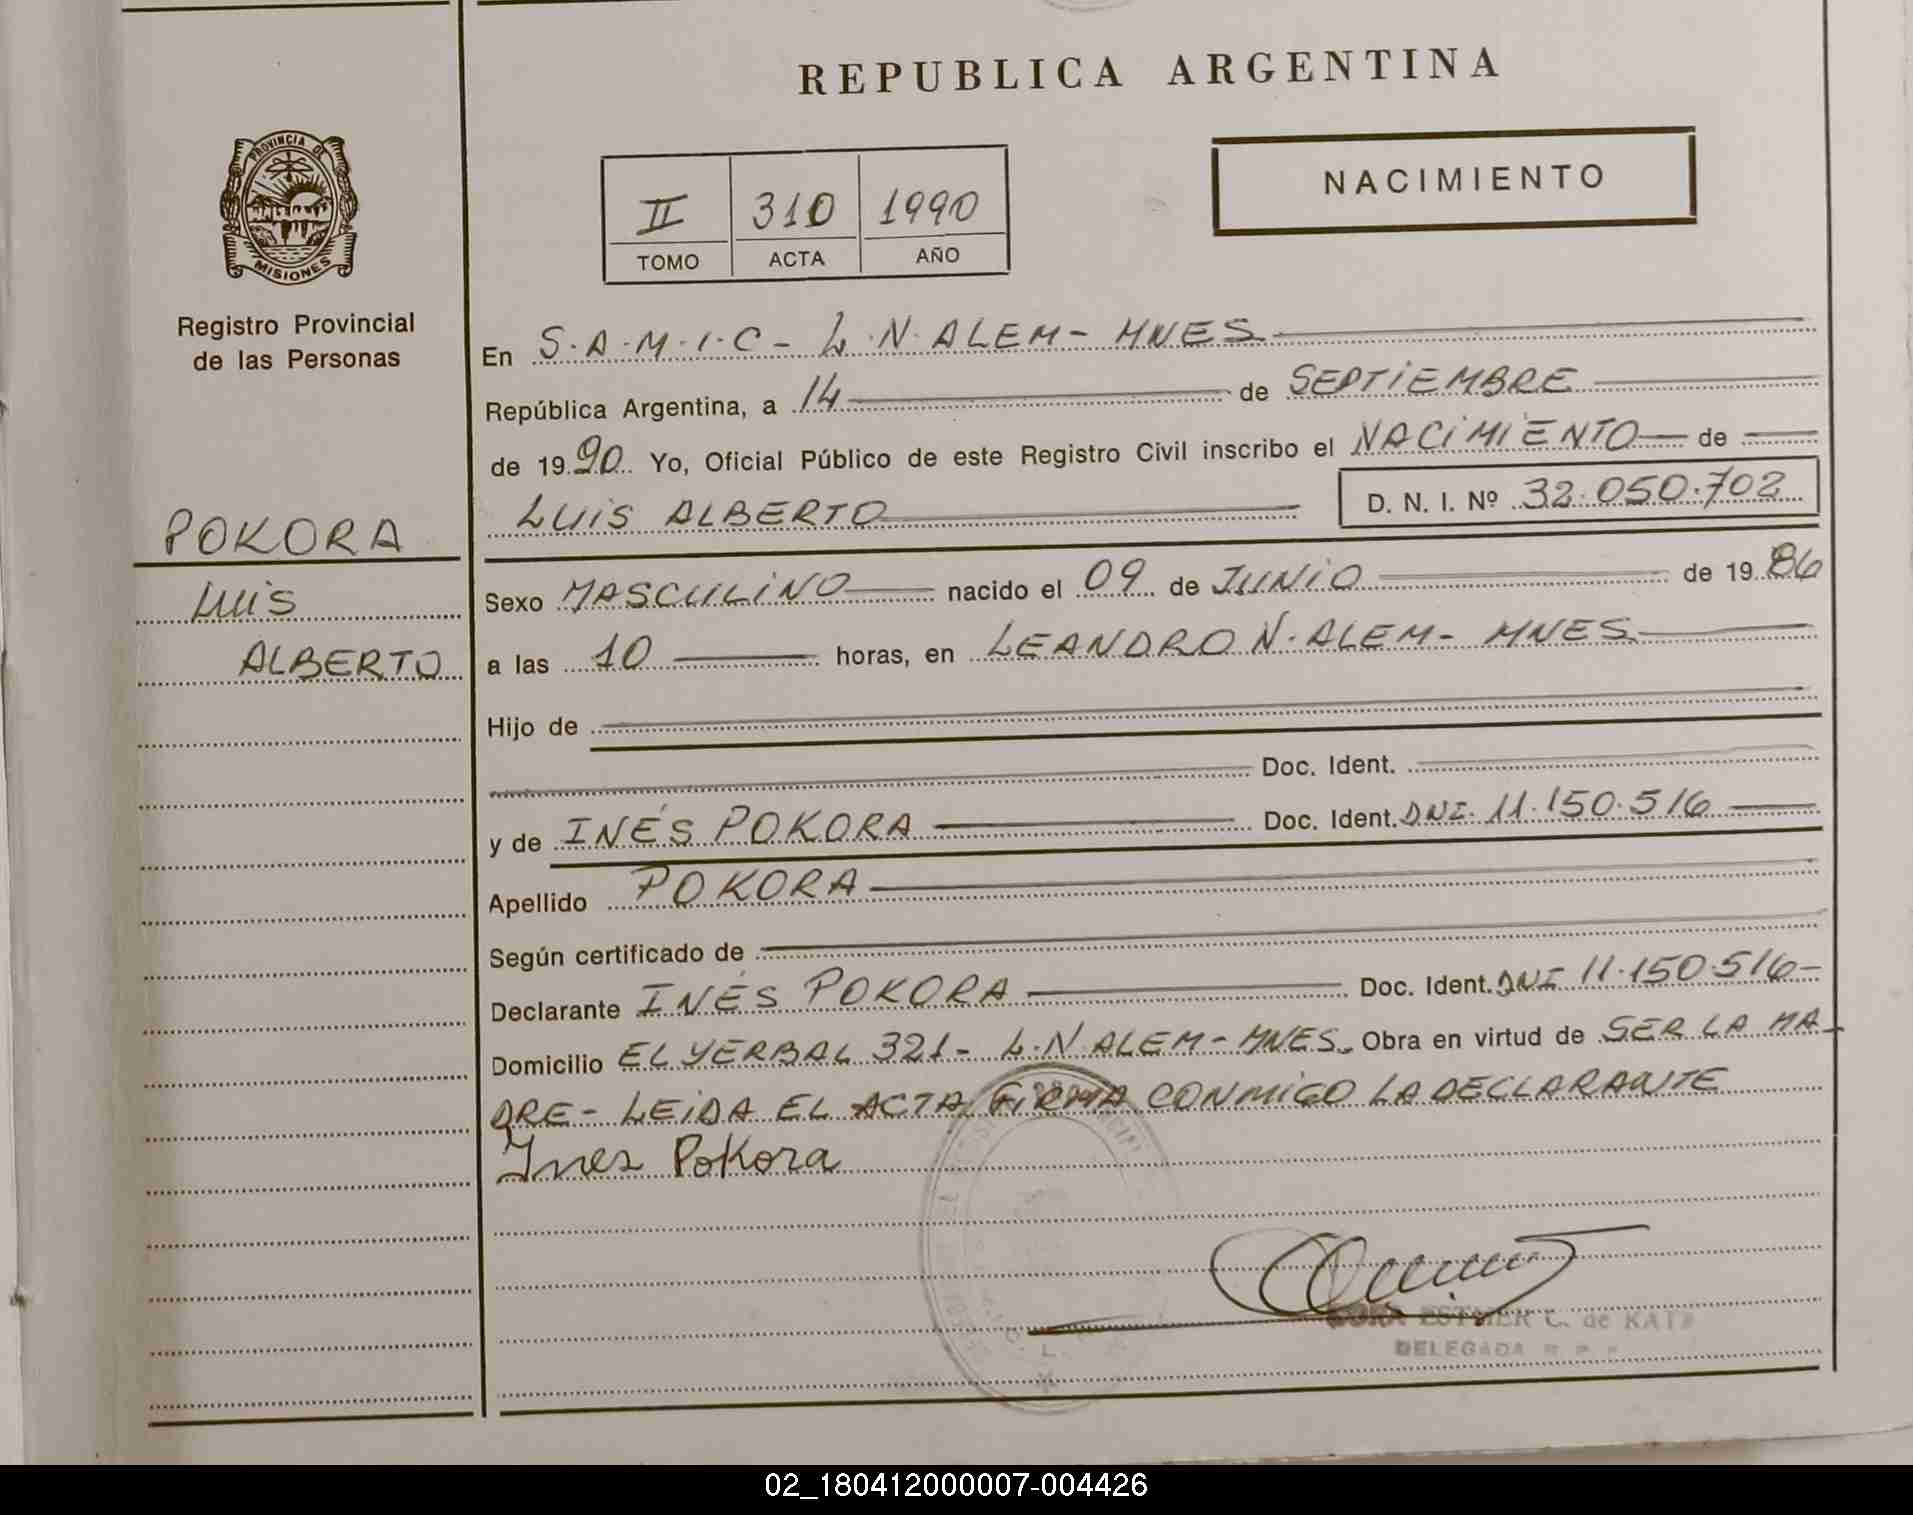 REPUBLICA ARGENTINA
PROVINCIA DE
MISIONES
Registro Provincial
de las Personas
II 310 1990
TOMO ACTA AÑO
NACIMIENTO
POKORA
LUIS
ALBERTO
En S.A.M.I.C - L.N.ALEM - MNES
República Argentina, a 14 de SEPTIEMBRE
de 1990 Yo, Oficial Público de este Registro Civil inscribo el NACIMIENTO de
LUIS ALBERTO D. N. I. Nº 32.050.702
Sexo MASCULINO nacido el 09 de JUNIO de 1986
a las 10 horas, en LEANDRO N. ALEM - MNES
Hijo de
Doc. Ident.
y de INÉS POKORA Doc. Ident. DNI. 11.150.516
Apellido POKORA
Según certificado de
Declarante INÉS POKORA Doc. Ident. DNI 11.150.516-
Domicilio EL YERBAL 321- L.N ALEM - MNES. Obra en virtud de SER LA MA-
DRE - LEIDA EL ACTA FIRMA CONMIGO LA DECLARANTE
Ines Pokora
ESTHER C. de KATZ
DELEGADA
02_180412000007-004426